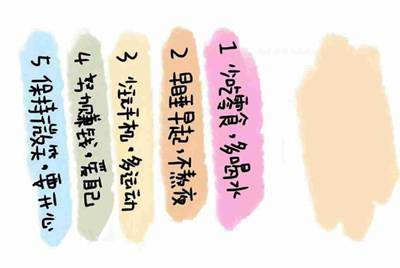 1 少吃零食,多喝水
2 早睡早起,不熬夜
3 少玩手机,多运动
4 努力赚钱,爱自己
5 保持微笑,要开心